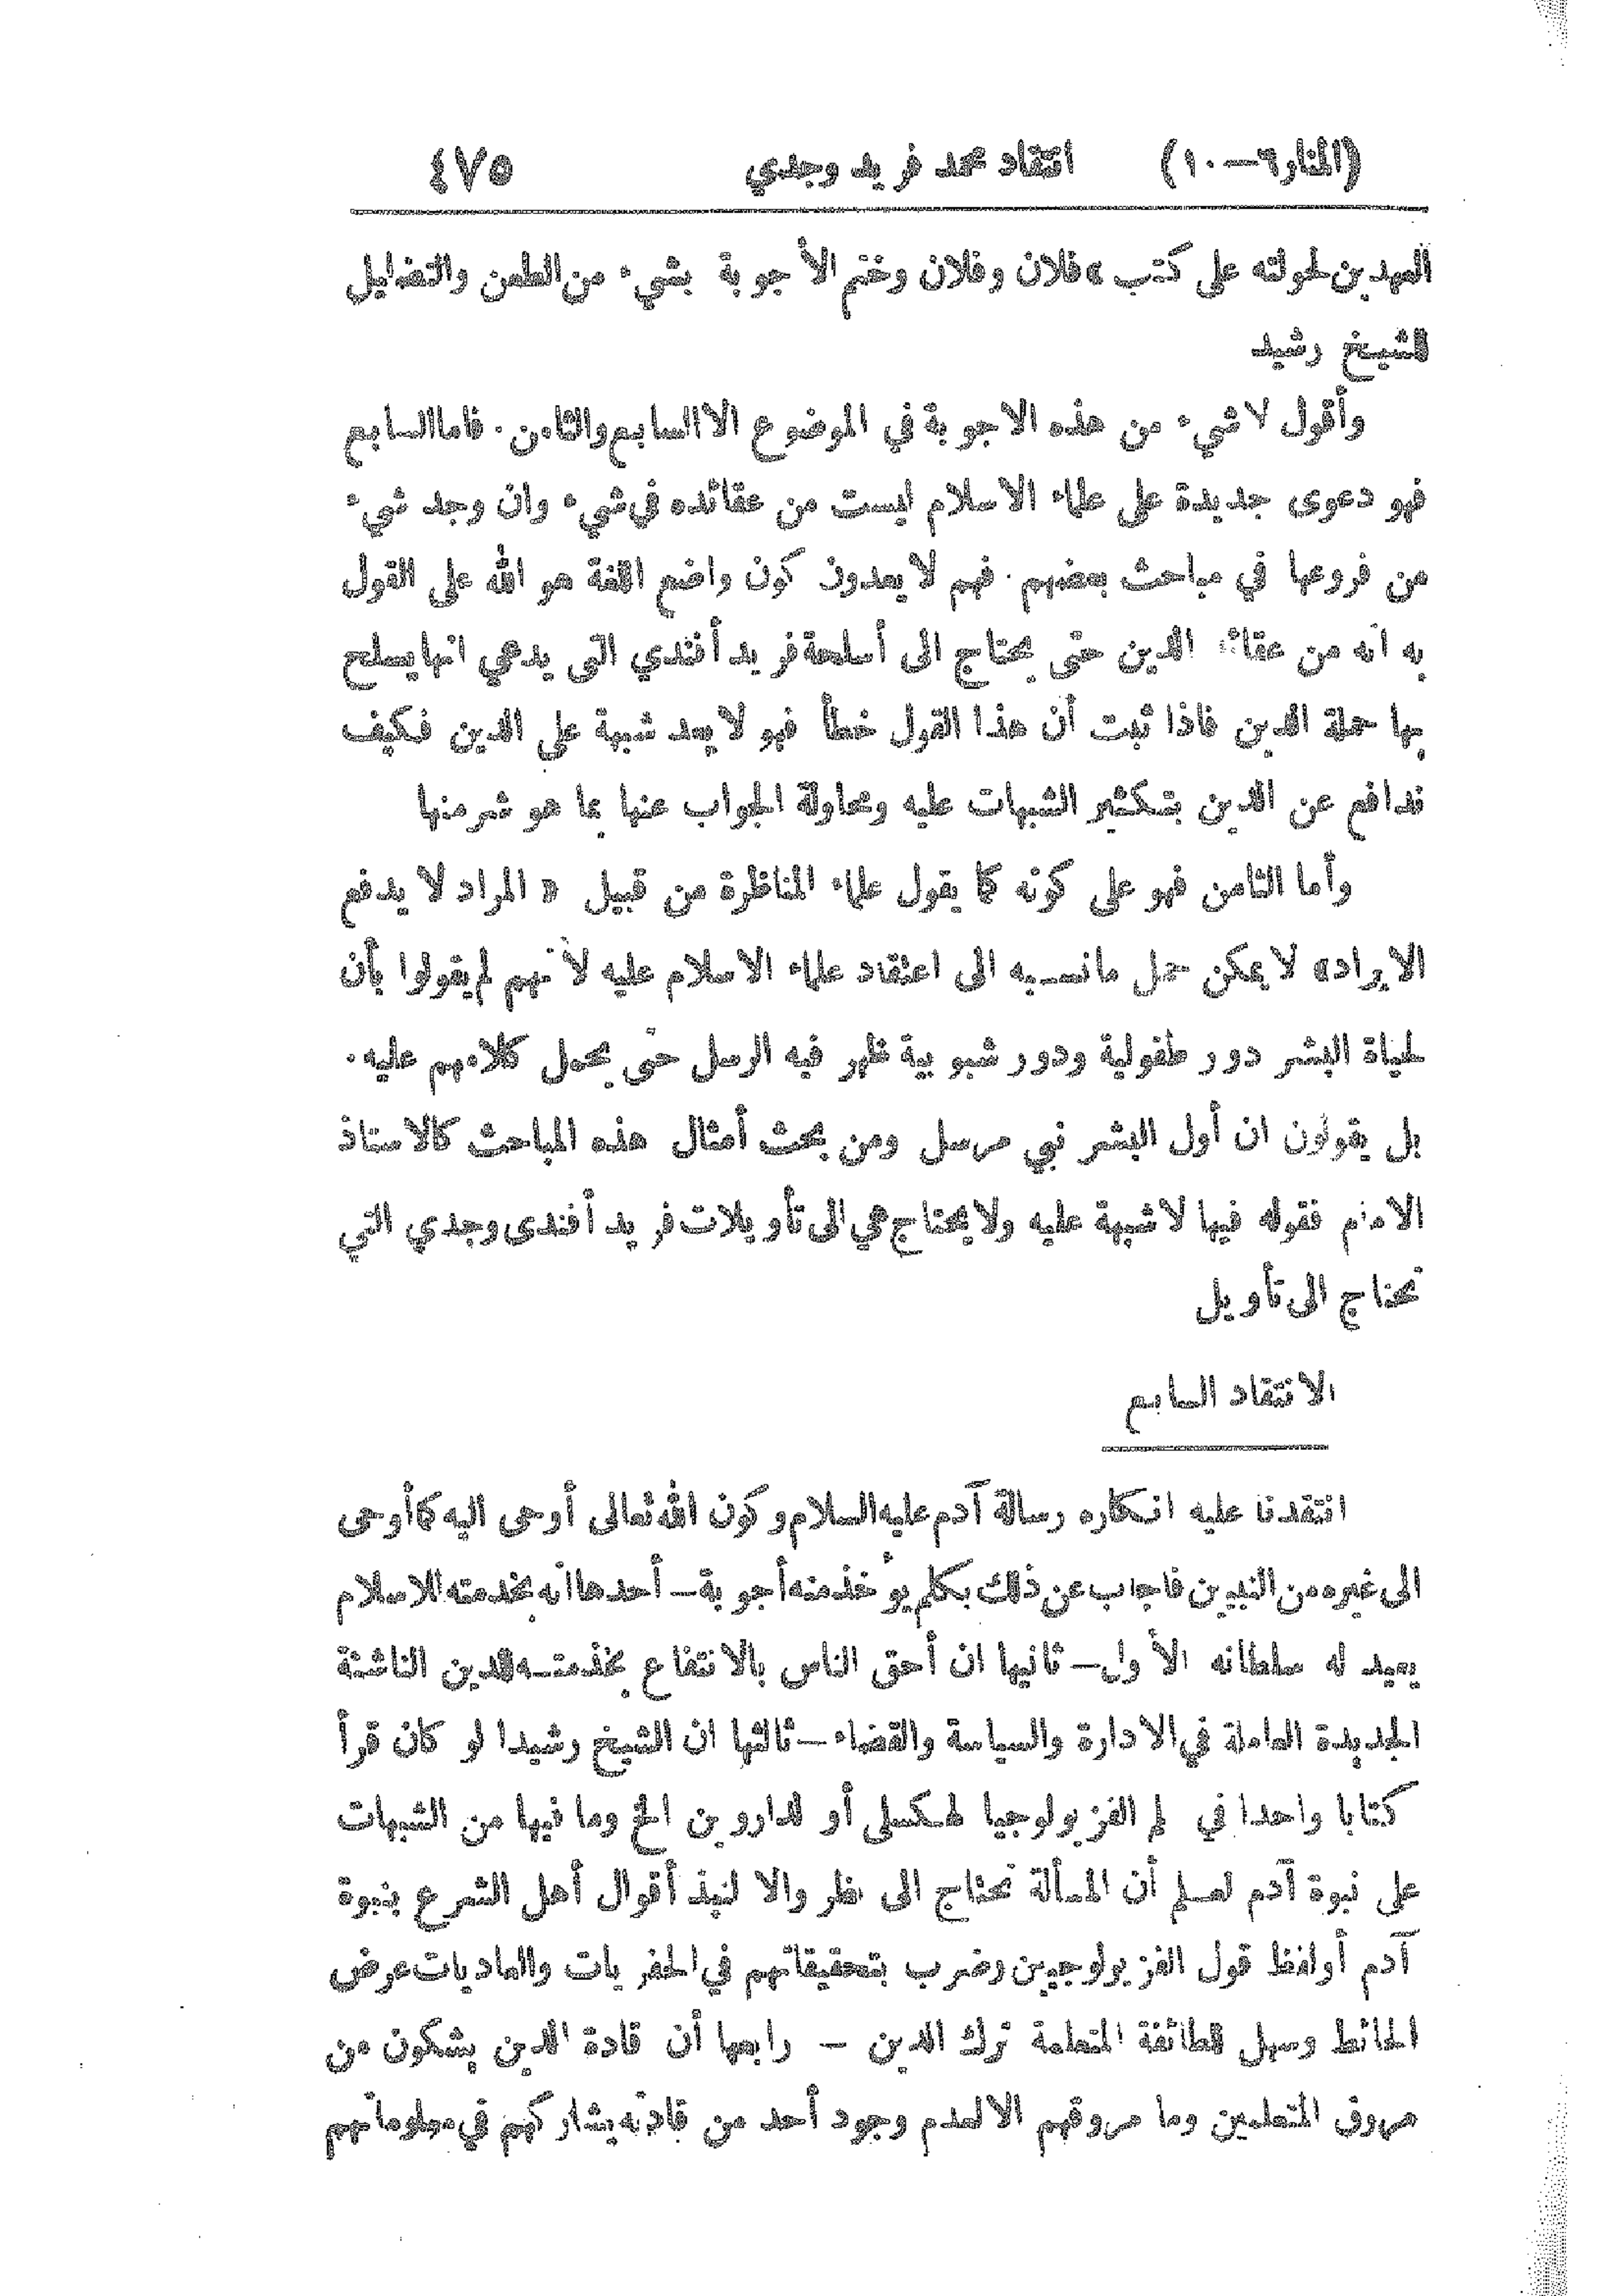 (المنار ٦ – ١٠) انتقاد محمد فريد وجدي ٤٧٥
المهدين لحولته على كتب » فلان وفلان وختم الأجوبة بشيء من الطعن والتضليل
للشيخ رشيد
وأقول لا شيء من هذه الاجوبة في الموضوع الا السابع والثامن . فاما السابع
فهو دعوى جديدة على علماء الاسلام ليست من عقائده في شيء وان وجد شيء
من فروعها في مباحث بعضهم . فهم لا يعدون كون واضع اللغة هو الله على القول
به انه من عقائد الدين حتى يحتاج الى أسلحة فريد أفندي التي يدعي انها يسلح
بها حملة الدين فاذا ثبت أن هذا القول خطأ فهو لا يعد شبهة على الدين فكيف
ندافع عن الدين بتكثير الشبهات عليه ومحاولة الجواب عنها بما هو شر منها
وأما الثامن فهو على كونه كما يقول علماء المناظرة من قبيل « المراد لا يدفع
الايراد» لا يمكن حمل ما نسبه الى اعتقاد علماء الاسلام عليه لأنهم لم يقولوا بأن
لحياة البشر دور طفولية ودور شبوبية ظهر فيه الرسل حتى يحمل كلامهم عليه .
بل يقولون ان أول البشر نبي مرسل ومن بحث أمثال هذه المباحث كالاستاذ
الامام فقوله فيها لا شبهة عليه ولا يحتاج هي الى تأويلات فريد أفندى وجدي التي
تحتاج الى تأويل
الانتقاد السابع
انتقدنا عليه انكاره رسالة آدم عليه السلام وكون الله تعالى أوحى اليه كما أوحى
الى غيره من النبيين فاجاب عن ذلك بكلم يؤخذ منه أجوبة – أحدها انه بخدمته للاسلام
يعيد له سلطانه الأول – ثانيها ان أحق الناس بالانتفاع بخدمته للدين الناشئة
الجديدة العاملة في الادارة والسياسة والقضاء – ثالثها ان الشيخ رشيدا لو كان قرأ
كتابا واحدا في لم الفزيولوجيا لهكسلى أو لداروين الخ وما فيها من الشبهات
على نبوة آدم لعلم أن المسألة تحتاج الى نظر والا لنبذ أقوال أهل الشرع بنبوة
آدم أو لفظ قول الفزيولوجيين وضرب بتحقيقاتهم في الحفريات والعاديات عرض
الحائط وسهل للطائفة المتعلمة ترك الدين – رابعها أن قادة الدين يشكون من
مروق المتعلمين وما مروقهم الا لعدم وجود أحد من قادته يشاركهم في معلوماتهم